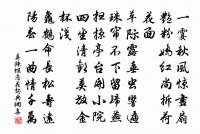 一霎秋風驚畫扇
艷粉嬌紅尚拆荷
花面
草際露垂蟲響遍
珠簾不下留歸燕
掃掠亭臺開小院
四坐清歡莫放金
杯淺
龜鶴命長松壽遠
陽春一曲情千萬